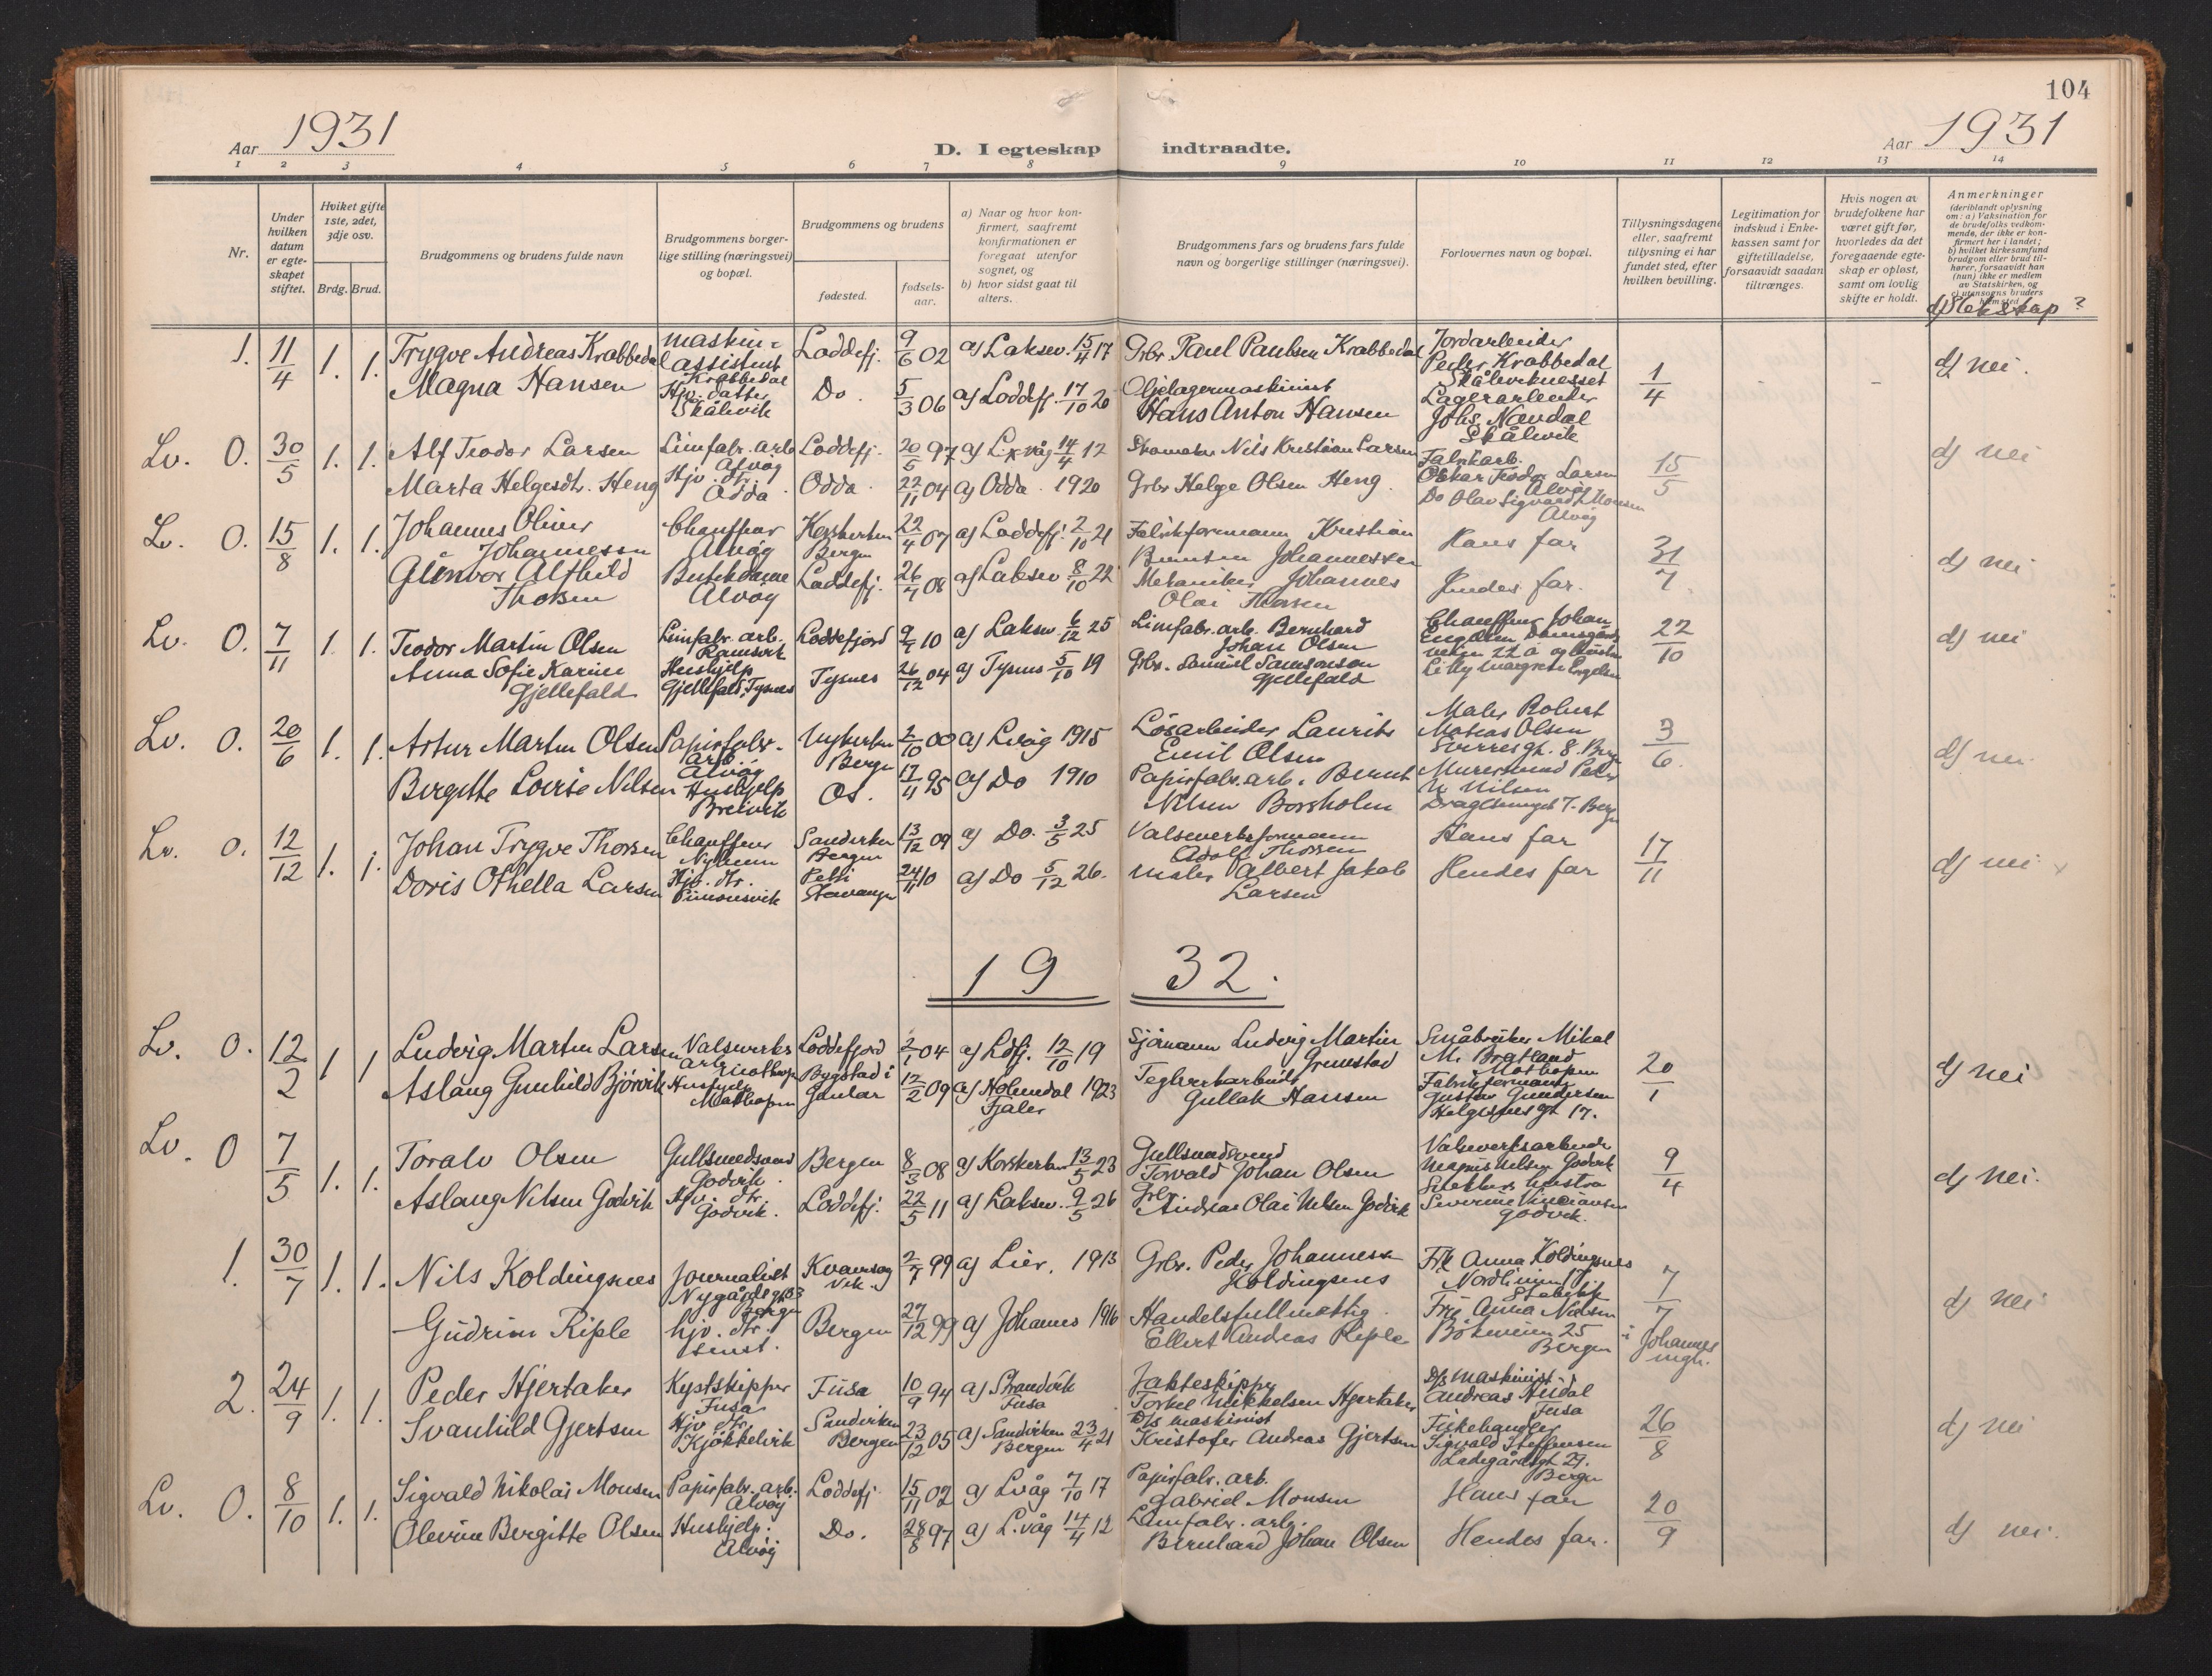 104
Aar 1931
D. I egteskap indtraadte.
Aar 1931
1 2 3 4 5 6 7 8 9 10 11 12 13 14
Nr.
Under hvilken datum er egteskapet stiftet.
Hvilket gifte 1ste, 2det, 3dje osv.
Brdg. Brud.
Brudgommens og brudens fulde navn
Brudgommens borgerlige stilling (næringsvei) og bopæl.
Brudgommens og brudens
fødested.
fødselsaar.
a) Naar og hvor konfirmert, saafremt konfirmationen er foregaat utenfor sognet, og
b) hvor sidst gaat til alters.
Brudgommens fars og brudens fars fulde navn og borgerlige stillinger (næringsvei).
Forlovernes navn og bopæl.
Tillysningsdagene eller, saafremt tillysning ei har fundet sted, efter hvilken bevilling.
Legitimation for indskud i Enkekassen samt for giftetilladelse, forsaavidt saadan tiltrænges.
Hvis nogen av brudefolkene har været gift før, hvorledes da det foregaaende egteskap er opløst, samt om lovlig skifte er holdt.
Anmerkninger
(deriblandt oplysning om: a) Vaksination for de brudefolks vedkommende, der ikke er konfirmert her i landet;
b) hvilket kirkesamfund brudgom eller brud tilhører, forsaavidt han (hun) ikke er medlem av Statskirken, og
c) utensogns bruders hjemsted
d) Slekskap?
1. 11/4 1. 1. Trygve Andreas Krabbedal maskinassistent Krabbedal Loddefj. 9/6 02 a) Laksev. 15/4 17 Grbr. Paul Paulsen Krabbedal Jordarbeider Peder Krabbedal Skålviknesset 1/4 - - d) nei.
Magna Hansen Hjv. datter Skålevik Do. 5/3 06 a) Loddefj. 17/10 20 Oljelagermaskinist Hans Anton Hansen Lagerarbeider Johs. Nævdal Skålevik
Lv. 0. 30/5 1. 1. Alf Teodor Larsen Limfabr. arb. Alvøy Loddefj. 20/5 97 a) L.kvåg 14/4 12 Nils Kristian Larsen Fabrikarb. Oskar Teodor Larsen Alvøy 15/5 d) nei
Marta Helgesdtr. Heng Hjv. dtr. Odda Odda 22/11 04 a) Odda 1920 Grbr Helge Olsen Heng. Do Olav Sigvard Monsen Alvøy
Lv. 0. 15/8 1. 1. Johannes Oliver Johannessen Chauffør Alvøy Korskirken Bergen 22/4 07 a) Loddefj. 2/10 21 Fabrikformann Kristian Johannessen Hans far 31/7 d) nei
Gunvor Alfhild Thorsen Butikdame Alvøy Loddefj. 26/7 08 a) Laksev 8/10 22 Mekaniker Johannes Olai Thorsen Hendes far.
Lv. 0. 7/11 1. 1. Teodor Martin Olsen Limfabr. arb. Ramsvik Loddefjord 9/7 10 a) Laksev 6/12 25 Limfabr. arb. Bernhard Johan Olsen Chauffør Johan Engelsen Damsgårdsveien 22 a og 22/10 d) nei
Anna Sofie Karine Gjellefald Hushjelp Gjellefald, Tysnes Tysnes 26/12 04 a) Tysnes 5/10 19 Grbr. Samuel Samsonson Gjellefald Lilly Margrete Engelsen
Lv. 0. 20/6 1. 1. Artur Martin Olsen Papirfabr. arb. Alvøy Nykirken Bergen 2/10 00 a) L.våg 1915 Løsarbeider Laurits Emil Olsen Maler Robert Matias Olsen Sverresgt. 8. Bergen 3/6. d) nei
Bergitte Lovise Nilsen Hushjelp Breivik Os. 17/4 95 a) Do 1910 Papirfabr. arb. Bernt Nilsen Borsholm Murersvend Peder N. Nilsen 7. Bergen
Lv. 0. 12/12 1. 1. Johan Trygve Thorsen Chauffør Sandviken Bergen 13/12 09 a) Do. 3/5 25 Valseverksformann Adolf Thorsen Hans far 17/11 d) nei
Doris Othella Larsen Hjv. dtr. Simonsvik Petri Stavanger 24/11 10 a) Do 5/12 26. Maler Albert Jakob Larsen Hendes far
1932.
Lv. 0. 12/2 1 1 Ludvig Martin Larsen Valsverks arb. Mathopen Loddefjord 2/1 04 a) Ldfj. 12/10 19 Sjømann Ludvig Martin Grimstad Småbruker Mikal M. Bratland Mathopen 20/1 d) nei
Aslaug Gunhild Bjørvik Hushjelp Mathopen Bygstad i Gaular 12/2 09 a) Holmedal Fjaler 1923 Teglverkarbeider Gullak Hansen Fabrikformann Gustav Gundersen Helgesens gt. 17.
Lv. 0 7/5 1. 1. Toralv Olsen Gullsmedsvend Godvik Bergen 8/3 08 a) Korskirken 13/5 23 Gullsmedsvend Torvald Johan Olsen Valseverksarbeider Magnus Nilsen Godvik 9/4 d) nei.
Aslaug Nilsen Godvik Hjv. dtr. Godvik. Loddefj. 22/5 11 a) Laksev. 9/5 26 Grbr. Andreas Olai Nilsen Godvik hustru Severine Vinciansen Godvik.
1. 30/7 1. 1. Nils Koldingsnes Journalist Nygårdsgt. 63 Bergen Kvamsøy Vik. 2/7 99 a) Lier. 1913 Grbr. Peder Johannessen Koldingsnes Frk Anna Koldingsnes Stabekk 7/7 d) nei
Gudrun Riple hjv. dtr. Bergen 27/12 99 a) Johannes 1916 Handelsfullmektig Ellert Andreas Riple Frk Anna Nielsen Bøkeveien 25 Bergen i Johannes mgh.
2. 24/9 1. 1. Peder Hjertaker Kystskipper Fusa Fusa 10/9 94 a) Strandvik Fusa Jakteskipper Torkel Mikkelsen Hjertaker D/s maskinist Andreas Fusa 26/8 d) nei
Svanhild Gjertsen Hjv. dtr. Kjøkkelvik Sandviken Bergen 23/12 05 a) Sandviken Bergen 23/4 21 D/s maskinist Kristofer Andreas Gjertsen Fiskehandler Sigvald Steffensen Ladegårdsgt. 27. Bergen
Lv. 0. 8/10 1. 1. Sigvald Nikolai Monsen Papirfabr. arb. Alvøy Loddefj. 15/11 02 a) Lvåg 7/10 17 Papirfabr. arb. Gabriel Monsen Hans far 20/9 d) nei.
Olevine Bergitte Olsen Hushjelp. Alvøy Do. 28/8 97 a) L.våg 14/4 12 Limfabr. arb. Bernhard Johan Olsen Hendes far.